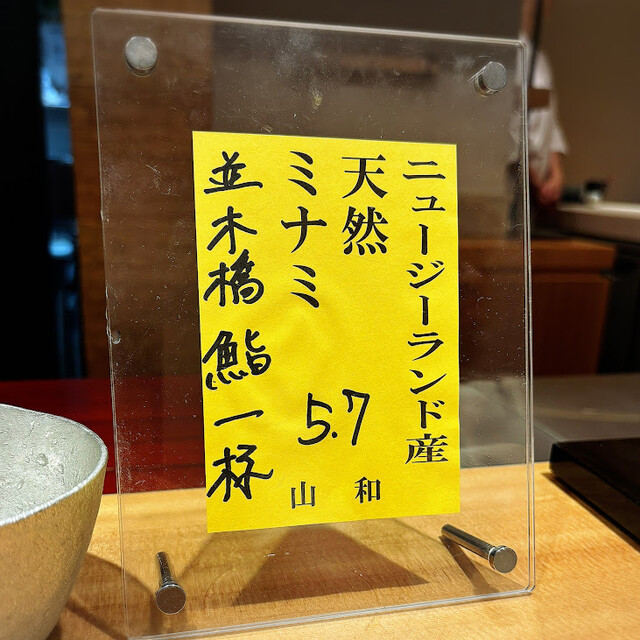 ニュージーランド産
天然
ミナミ
5.7
和
山
並木橋 鮨一杯